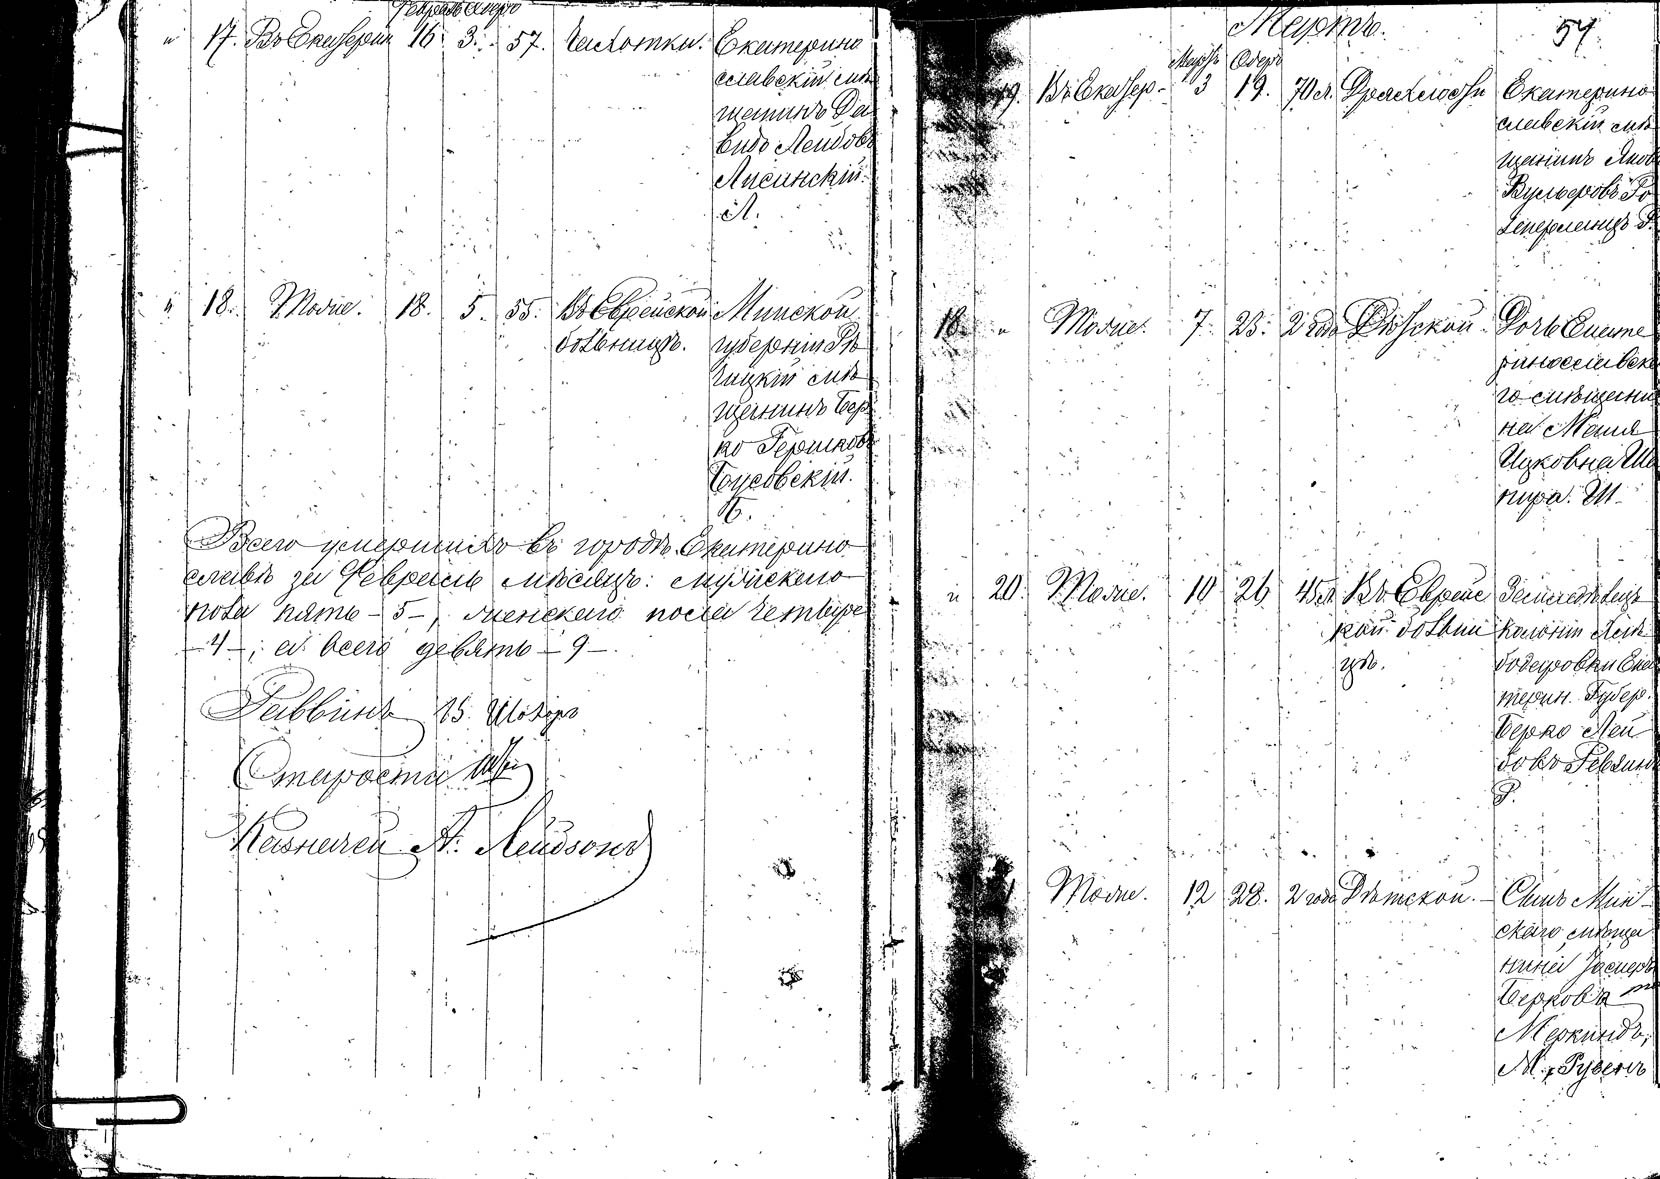 Февраль Адеръ
" 17. Въ Екатерин 16 3. 57. Чахотки. Екатерино
славскій мѣ
щанинъ Да
видъ Лейбовъ
Лисинскій.
Л.
" 18. Тоже. 18. 5. 55. Въ Еврейской Минской
больницѣ. губерніи Рѣ
чицкій мѣ
щанинъ Бер
ко Гершковъ
Бусовскій.
Б.
Всего умершихъ въ городѣ Екатерино
славѣ за Февраль мѣсяцъ: мужскаго
пола пять - 5 -, женскаго пола четыре
- 4 -, а всего девять - 9 -
Раввинъ Шохоръ
Староста
Казначей А. Лейбзонъ
Мартъ. 54
Мартъ Адеръ
19. Въ Екатер. 3 19. 70 л. Дряхлости Екатерино
славскій мѣ
щанинъ Яковъ
Вульфовъ
Р.
18. " Тоже. 7. 23. 2 года Дѣтской Дочь Екате
ринославска
го мѣщани
на Маня
Ицковна Ша
пира. Ш
" 20. Тоже. 10 26 45 л. Въ Еврейс Земледѣлецъ
кой больни колоніи
цѣ. Ека
терин. Губер.
Берко Лей
бовъ Ревзинъ
Р.
Тоже. 12 28. 2 года Дѣтской. Сынъ Мин
скаго мѣща
нина
Беркова
Меркиндъ,
М. Рувенъ